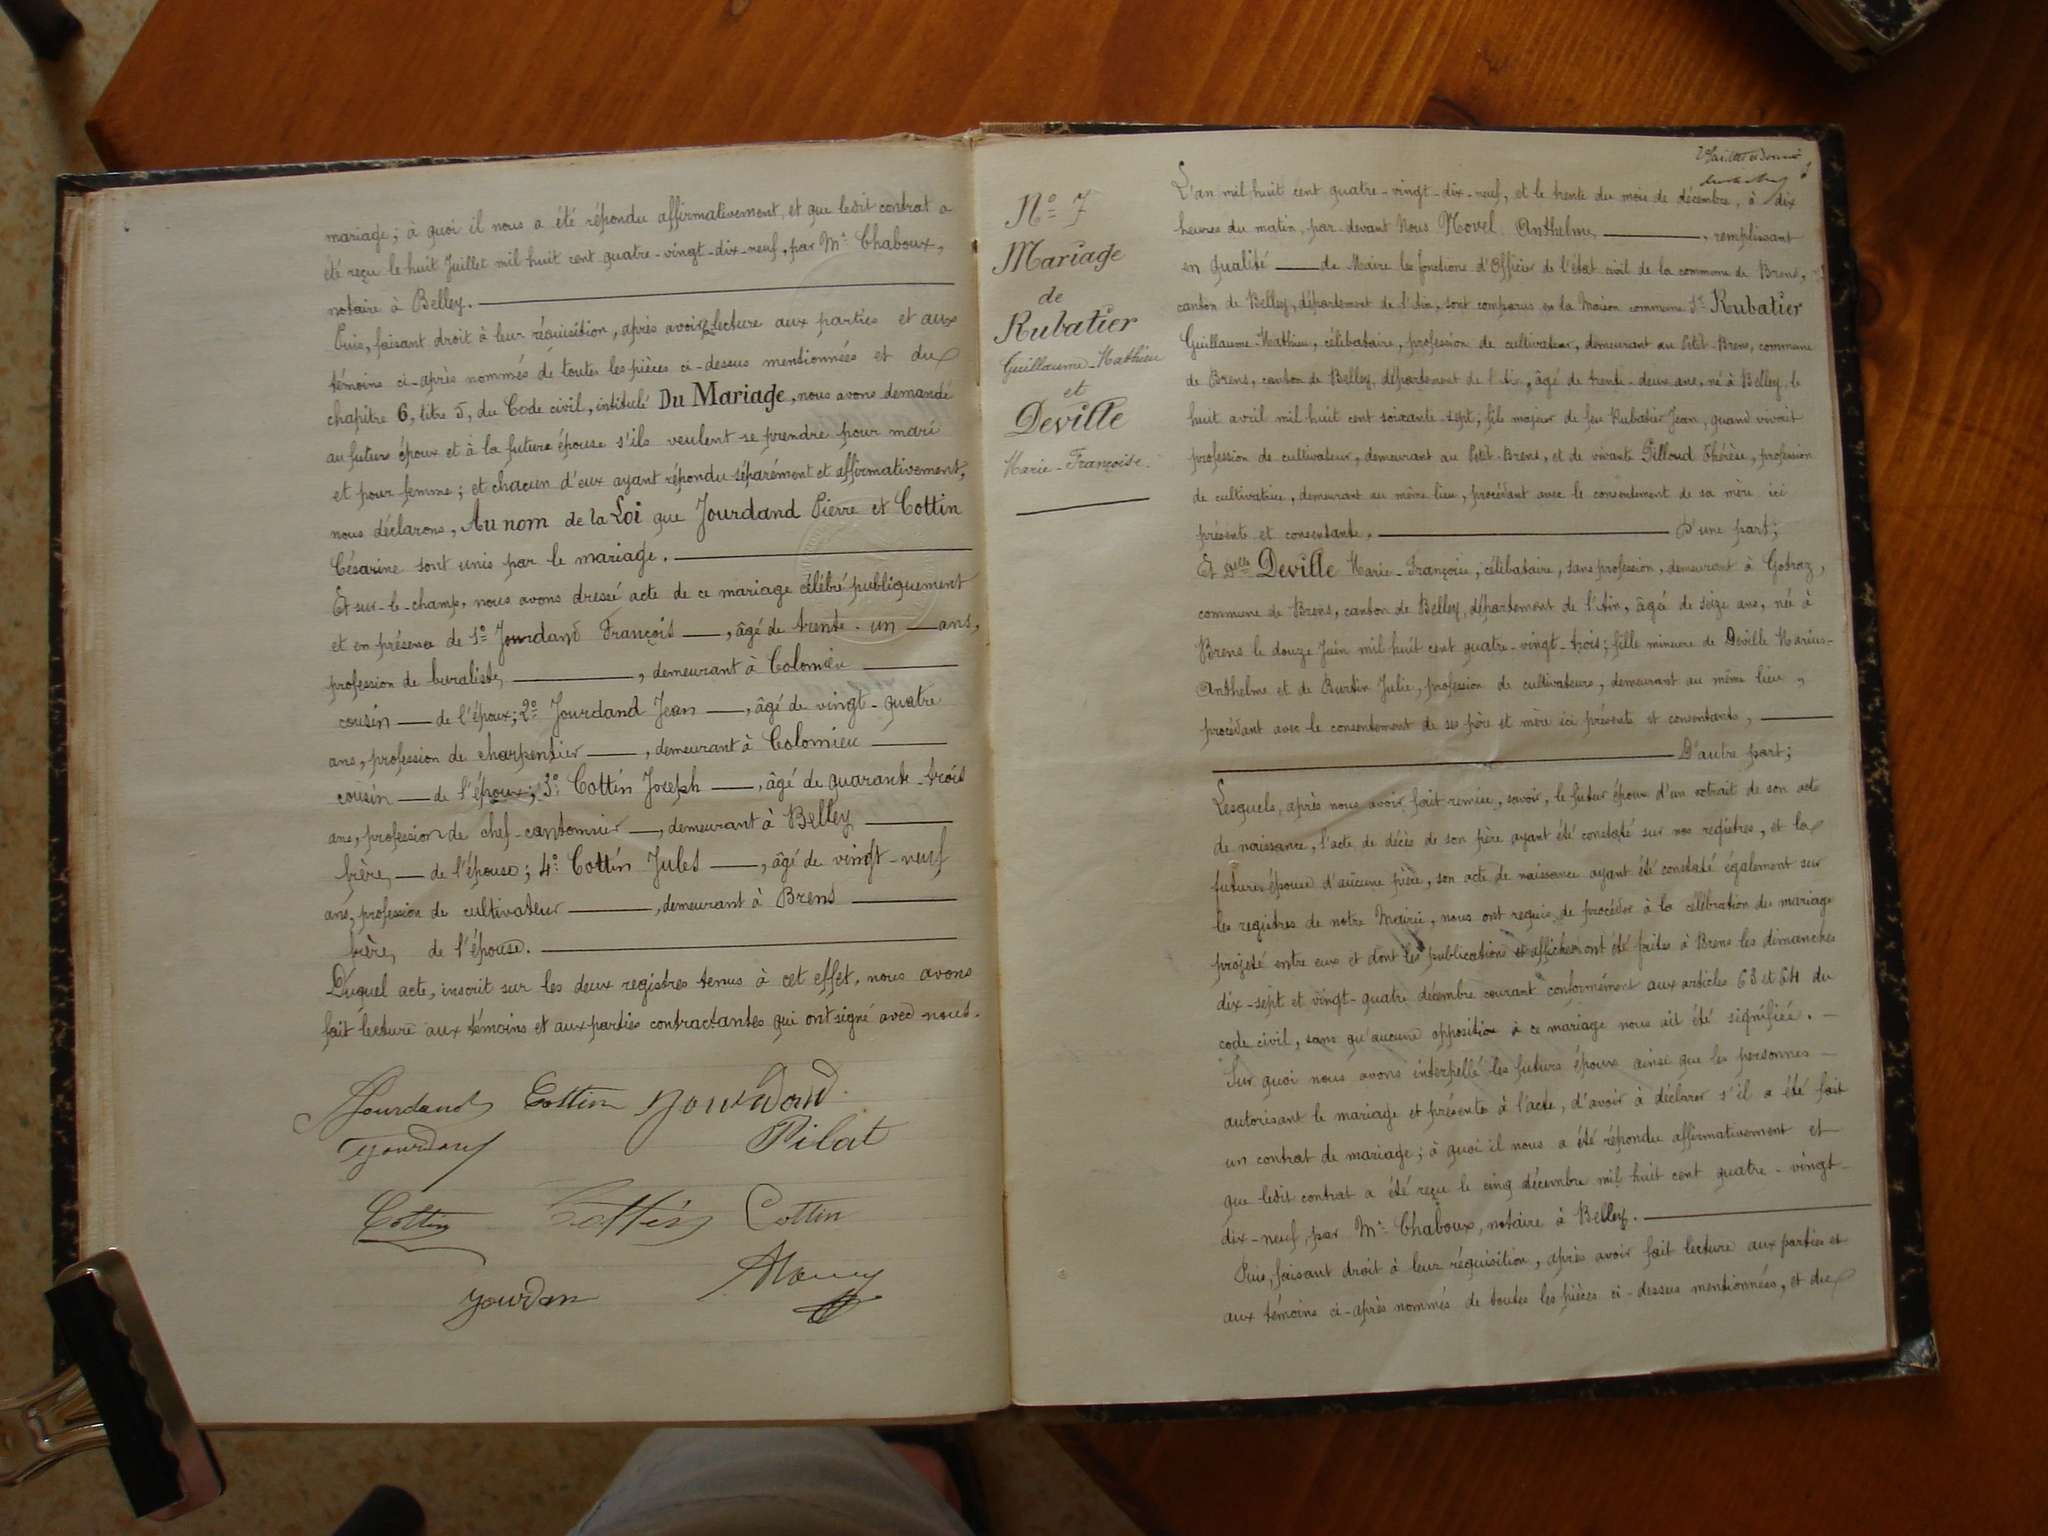 mariage ; à quoi il nous a été répondu affirmativement, et que ledit contrat a
été reçu le huit Juillet mil huit cent quatre-vingt-dix-neuf, par Me Chaboux,
notaire à Belley.
Puis, faisant droit à leur réquisition, après avoir lecture aux parties et aux
témoins ci-après nommés de toutes les pièces ci-dessus mentionnées et du
chapitre 6, titre 5, du Code civil, intitulé Du Mariage, nous avons demandé
au futur époux et à la future épouse s'ils veulent se prendre pour mari
et pour femme ; et chacun d'eux ayant répondu séparément et affirmativement,
nous déclarons, Au nom de la Loi que Jourdand Pierre et Cottin
Césarine sont unis par le mariage.
Et sur-le-champ, nous avons dressé acte de ce mariage célébré publiquement
et en présence de 1º Jourdand François, âgé de trente-un ans,
profession de buraliste, demeurant à Colomieu
cousin de l'époux ; 2º Jourdand Jean, âgé de vingt-quatre
ans, profession de charpentier, demeurant à Colomieu
cousin de l'époux ; 3º Cottin Joseph, âgé de quarante-trois
ans, profession de chef-cantonnier, demeurant à Belley
frère, de l'épouse ; 4º Cottin Jules, âgé de vingt-neuf
ans, profession de cultivateur, demeurant à Brens
frère, de l'épouse.
Duquel acte, inscrit sur les deux registres tenus à cet effet, nous avons
fait lecture aux témoins et aux parties contractantes qui ont signé avec nous.
Jourdand Cottin Jourdand
Jourdand Pilat
Cottin Cottin Cottin
Jourdan
Nº 7
Mariage
de
Rubatier
Guillaume-Mathieu
et
Deville
Marie-Françoise.
L'an mil huit cent quatre-vingt-dix-neuf, et le trente du mois de décembre, à dix
heures du matin, par-devant Nous Novel Anthelme, remplissant
en qualité de Maire les fonctions d'Officier de l'état civil de la commune de Brens,
canton de Belley, département de l'Ain, sont comparus en la Maison commune Sr Rubatier
Guillaume-Mathieu, célibataire, profession de cultivateur, demeurant au Petit-Brens, commune
de Brens, canton de Belley, département de l'Ain, âgé de trente-deux ans, né à Belley, le
huit avril mil huit cent soixante-sept ; fils majeur de feu Rubatier Jean, quand vivait
profession de cultivateur, demeurant au Petit-Brens, et de vivante Pilloud Thérèse, profession
de cultivatrice, demeurant au même lieu, procédant avec le consentement de sa mère ici
présente et consentante. D'une part ;
Et Delle Deville Marie-Françoise, célibataire, sans profession, demeurant à Gotraz,
commune de Brens, canton de Belley, département de l'Ain, âgée de seize ans, née à
Brens le douze Juin mil huit cent quatre-vingt-trois ; fille mineure de Deville Marius-
Anthelme et de Burtin Julie, profession de cultivateurs, demeurant au même lieu,
procédant avec le consentement de ses père et mère ici présents et consentants,
D'autre part ;
Lesquels, après nous avoir fait remise, savoir, le futur époux d'un extrait de son acte
de naissance, l'acte de décès de son père ayant été constaté sur nos registres, et la
future épouse d'aucune pièce, son acte de naissance ayant été constaté également sur
les registres de notre Mairie, nous ont requis de procéder à la célébration du mariage
projeté entre eux et dont les publications et affiches ont été faites à Brens les dimanches
dix-sept et vingt-quatre décembre courant conformément aux articles 63 et 64 du
code civil, sans qu'aucune opposition à ce mariage nous ait été signifiée.
Sur quoi nous avons interpellé les futurs époux ainsi que les personnes
autorisant le mariage et présentes à l'acte, d'avoir à déclarer s'il a été fait
un contrat de mariage ; à quoi il nous a été répondu affirmativement et
que ledit contrat a été reçu le cinq décembre mil huit cent quatre-vingt-
dix-neuf, par Me Chaboux, notaire à Belley.
Puis, faisant droit à leur réquisition, après avoir fait lecture aux parties et
aux témoins ci-après nommés de toutes les pièces ci-dessus mentionnées, et du